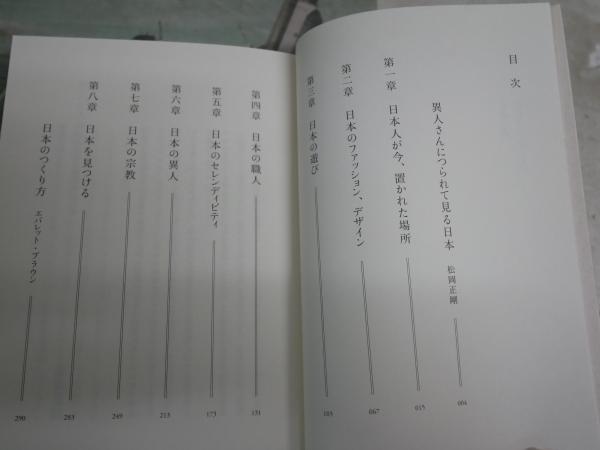 目次
異人さんにつられて見る日本 松岡正剛 004
第一章 日本人が今、置かれた場所 015
第二章 日本のファッション、デザイン 067
第三章 日本の遊び 103
第四章 日本の職人 131
第五章 日本のセレンディピティ 173
第六章 日本の異人 213
第七章 日本の宗教 249
第八章 日本を見つける 283
日本のつくり方 エバレット・ブラウン 290